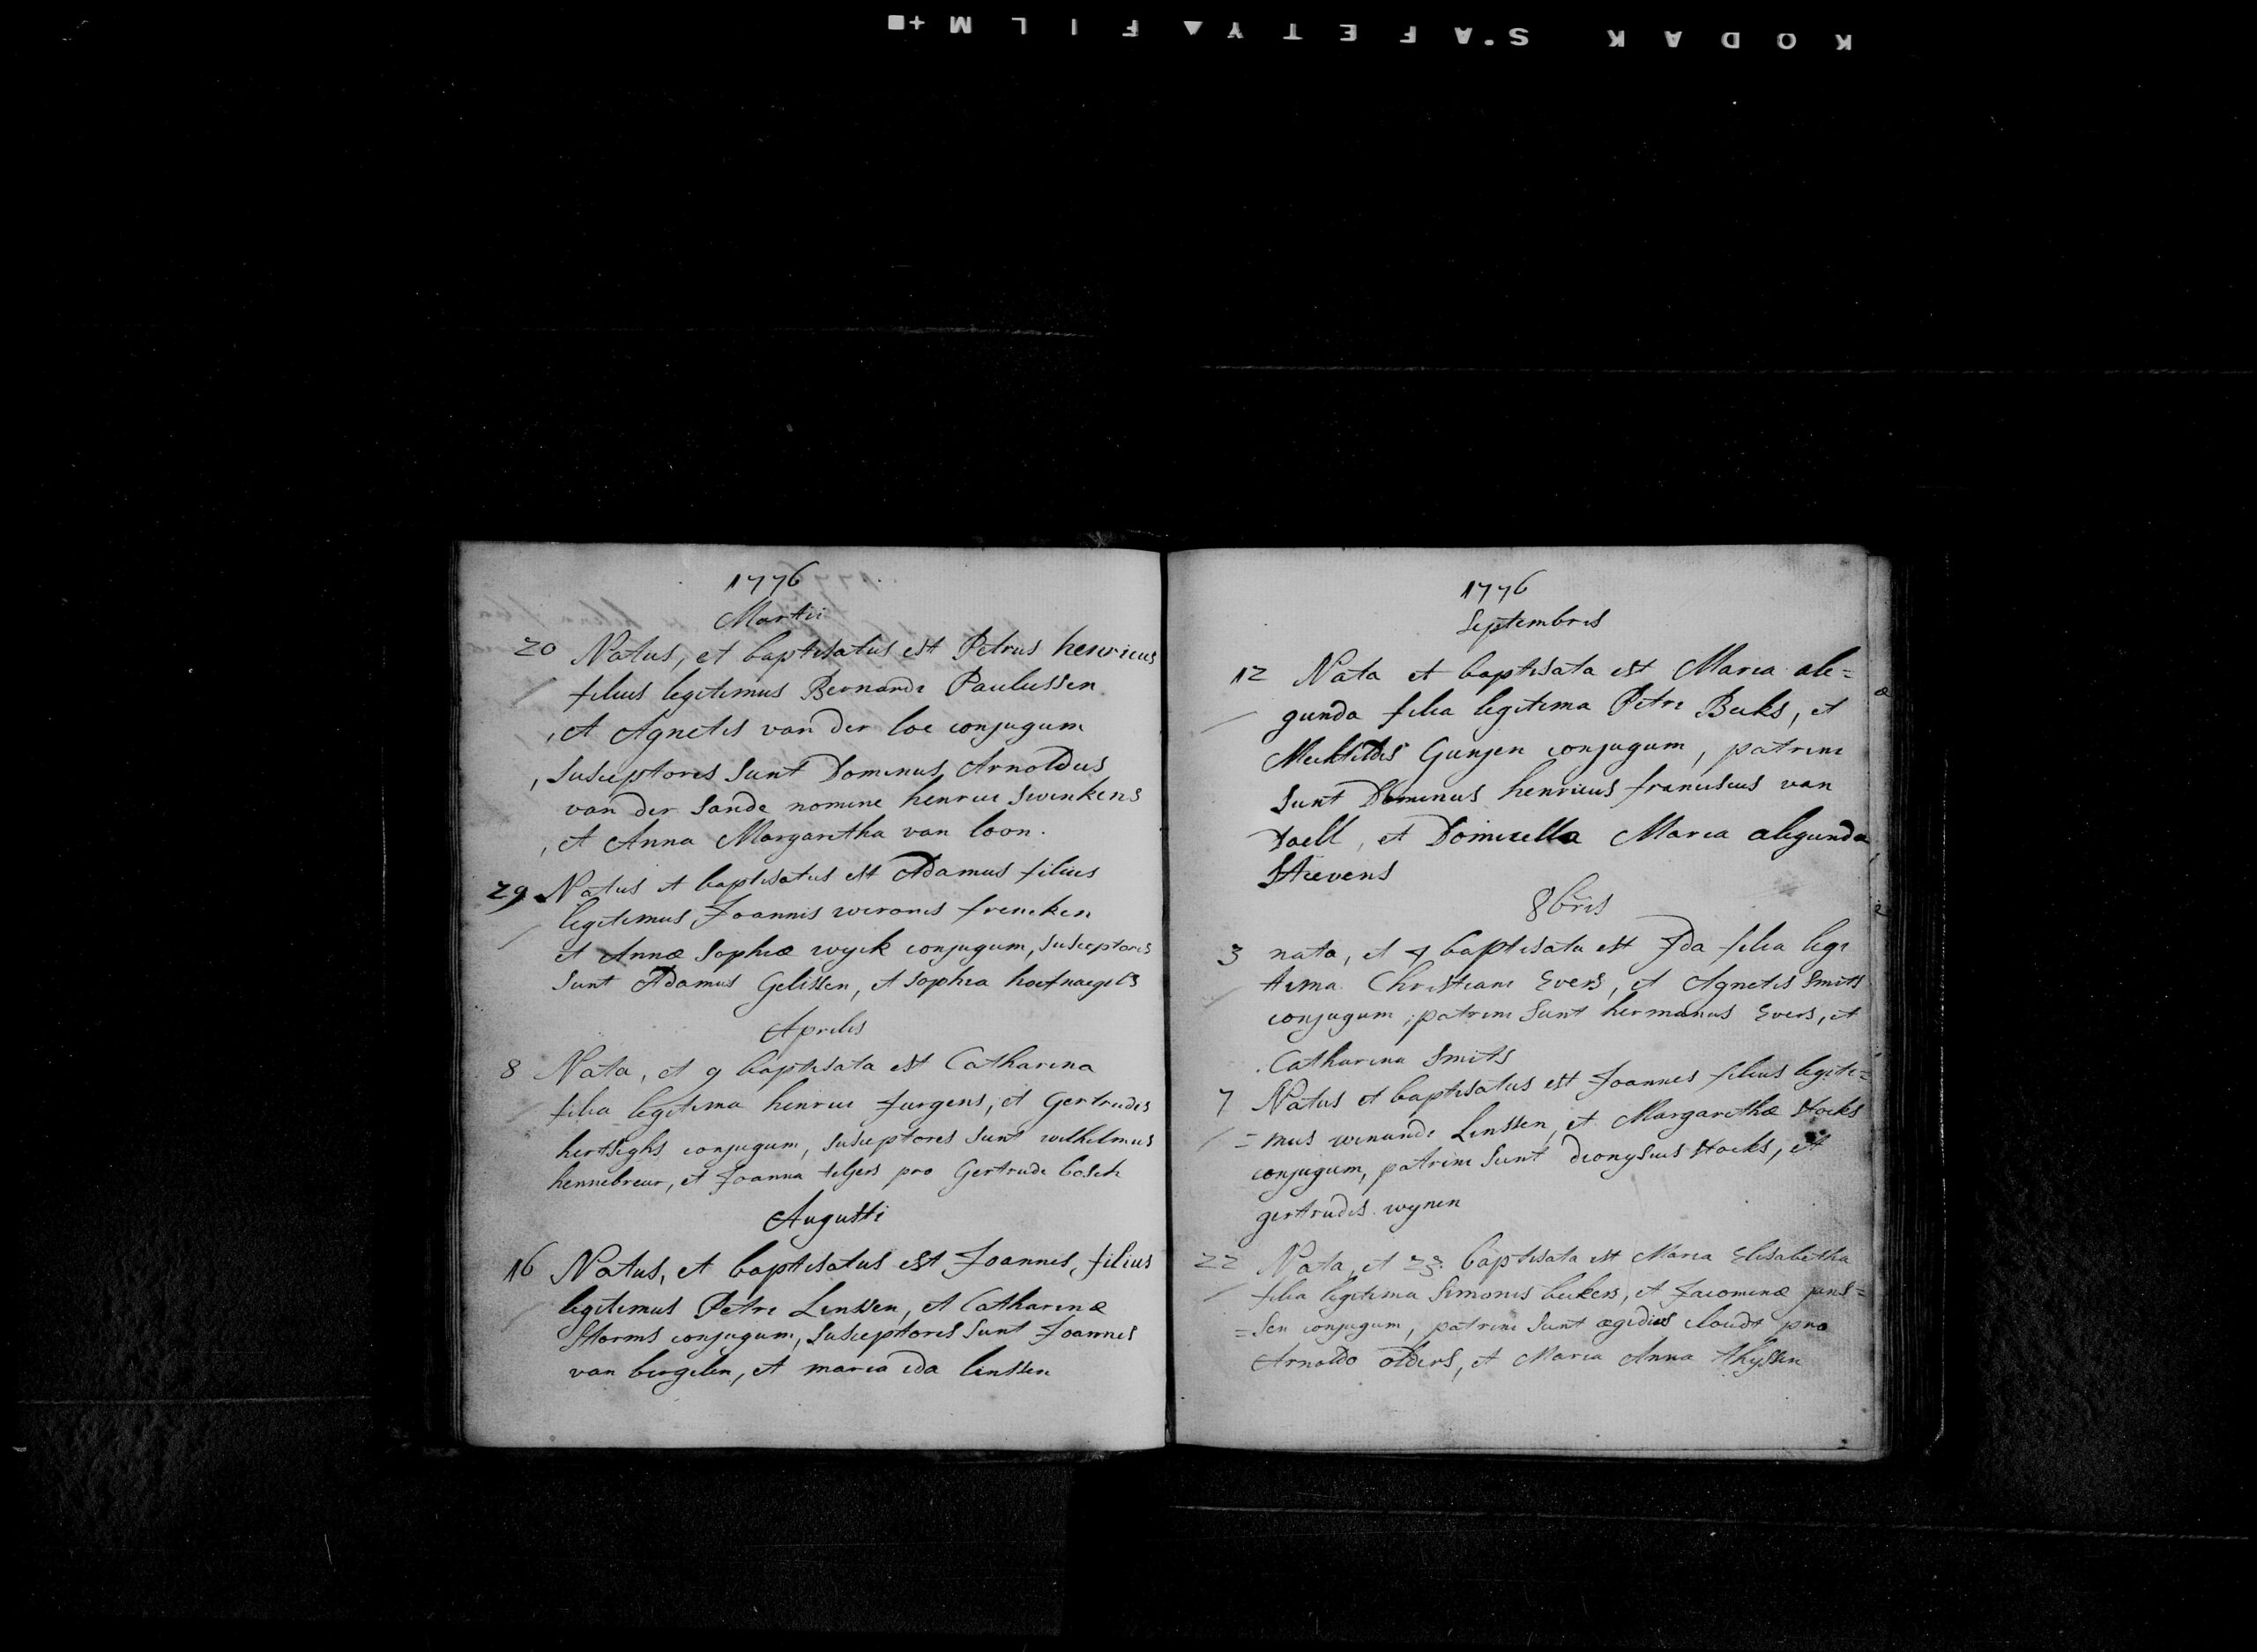 KODAK S.AFETY▲FILM+■
1776
Martii
20 Natus, et baptisatus est Petrus henricus
filius legitimus Bernardi Paulussen
, et Agnetis van der loe conjugum
, Susceptores Sunt Dominus Arnoldus
van der Sande nomine henrici Swinkens
, et Anna Margaretha van loon.
29 Natus et baptisatus est Adamus filius
legitimus Joannis werones frencken
et Annæ Sophiæ wyck conjugum, Susceptores
Sunt Adamus Gelissen, et Sophia hoefnaegels
Aprilis
8 Nata, et 9 baptisata est Catharina
filia legitima henrici Jurgens, et Gertrudis
hertsighs conjugum, Susceptores Sunt wilhelmus
hennebreur, et Joanna teljers pro Gertrude bosch
Augusti
16 Natus, et baptisatus est Joannes, filius
legitimus Petri Linssen, et Catharinæ
Storms conjugum, Susceptores Sunt Joannes
van bergelen, et maria ida linssen
1776
Septembris
12 Nata et baptisata est Maria ale=
gunda filia legitima Petri Beeks, et
Mechtildis Gunjen conjugum, patrini
Sunt Dominus henricus franciscus van
daell, et Domicella Maria alegunda
Stievens
8bris
3 nata, et 4 baptisata est Ida filia legi
tima Christiani Evers, et Agnetis Smits
conjugum; patrini Sunt hermanus Evers, et
Catharina Smits
7 Natus et baptisatus est Joannes filius legiti=
=mus winandi Linssen, et Margarethæ Stocks
conjugum, patrini Sunt dionysius Stocks, et
gertrudis wynen
22 Nata, et 23 baptisata est Maria Elisabetha
filia legitima Simonis beckers, et Jacominæ jans=
=Sen conjugum, patrini Sunt ægidius cloudt pro
Arnoldo olders, et Maria Anna thyssen